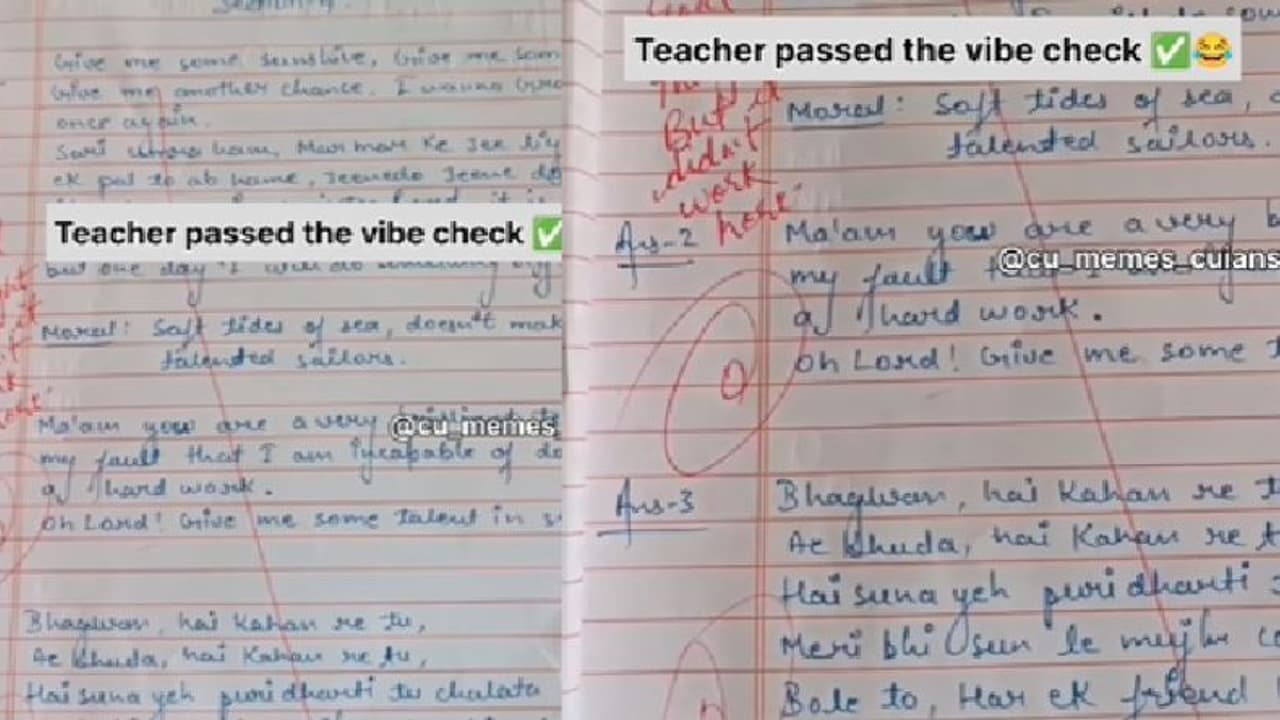 Give me some sunshine, Give me som
Give me another chance. I wanna
once again.
ek pal to ab hame, Jeene do Jeene do
Teacher passed the vibe check ✅
but one day I will do something
Moral: Soft tides of sea, doesn't mak
talented sailors.
Ma'am you are a very
@cu_memes_
my fault that I am incapable of do
a hard work.
Oh Lord! Give me some talent in
Bhagwan, hai Kahan re tu,
Ae Khuda, hai Kahan re tu,
Hai suna yeh puri dharti tu chalata
Teacher passed the vibe check ✅😂
But it
didn't
work
here.
Moral: Soft tides of sea,
talented sailors.
Ans-2
Ma'am you are a very b
@cu_memes_cuians
my fault
a hard work.
0
Oh Lord! Give me some
Ans-3
Bhagwan, hai Kahan re
Ae Khuda, hai Kahan re t
Hai suna yeh puri dharti
Meri bhi sun le
Bole to, Har ek friend